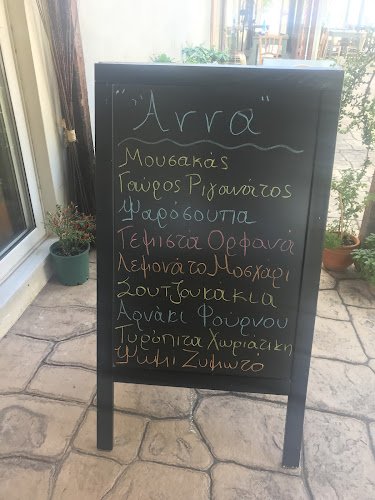 "Άννα"
Μουσακάς
Γαύρος Ριγανάτος
Ψαρόσουπα
Γεμιστά Ορφανά
Λεμονάτο Μοσχάρι
Σουτζουκάκια
Αρνάκι Φούρνου
Τυρόπιτα Χωριάτικη
Ψωμί Ζυμωτό